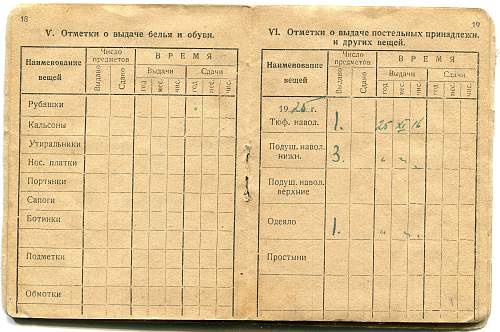 18
V. Отметки о выдаче белья и обуви.
Наименование вещей
Число предметов
ВРЕМЯ
Выдано
Сдано
Выдачи
Сдачи
год
мес.
чис.
год
мес.
чис.
Рубашки
Кальсоны
Утиральники
Нос. платки
Портянки
Сапоги
Ботинки
Подметки
Обмотки
19
VI. Отметки о выдаче постельных принадлежн.
и других вещей.
Наименование вещей
Число предметов
ВРЕМЯ
Выдано
Сдано
Выдачи
Сдачи
год
мес.
чис.
год
мес.
чис.
1925 г.
Тюф. навол. 1. 25 XI 16
Подуш. навол.
нижн. 3. „ „ „
Подуш. навол.
верхние
Одеяло 1. „ „ „
Простыни